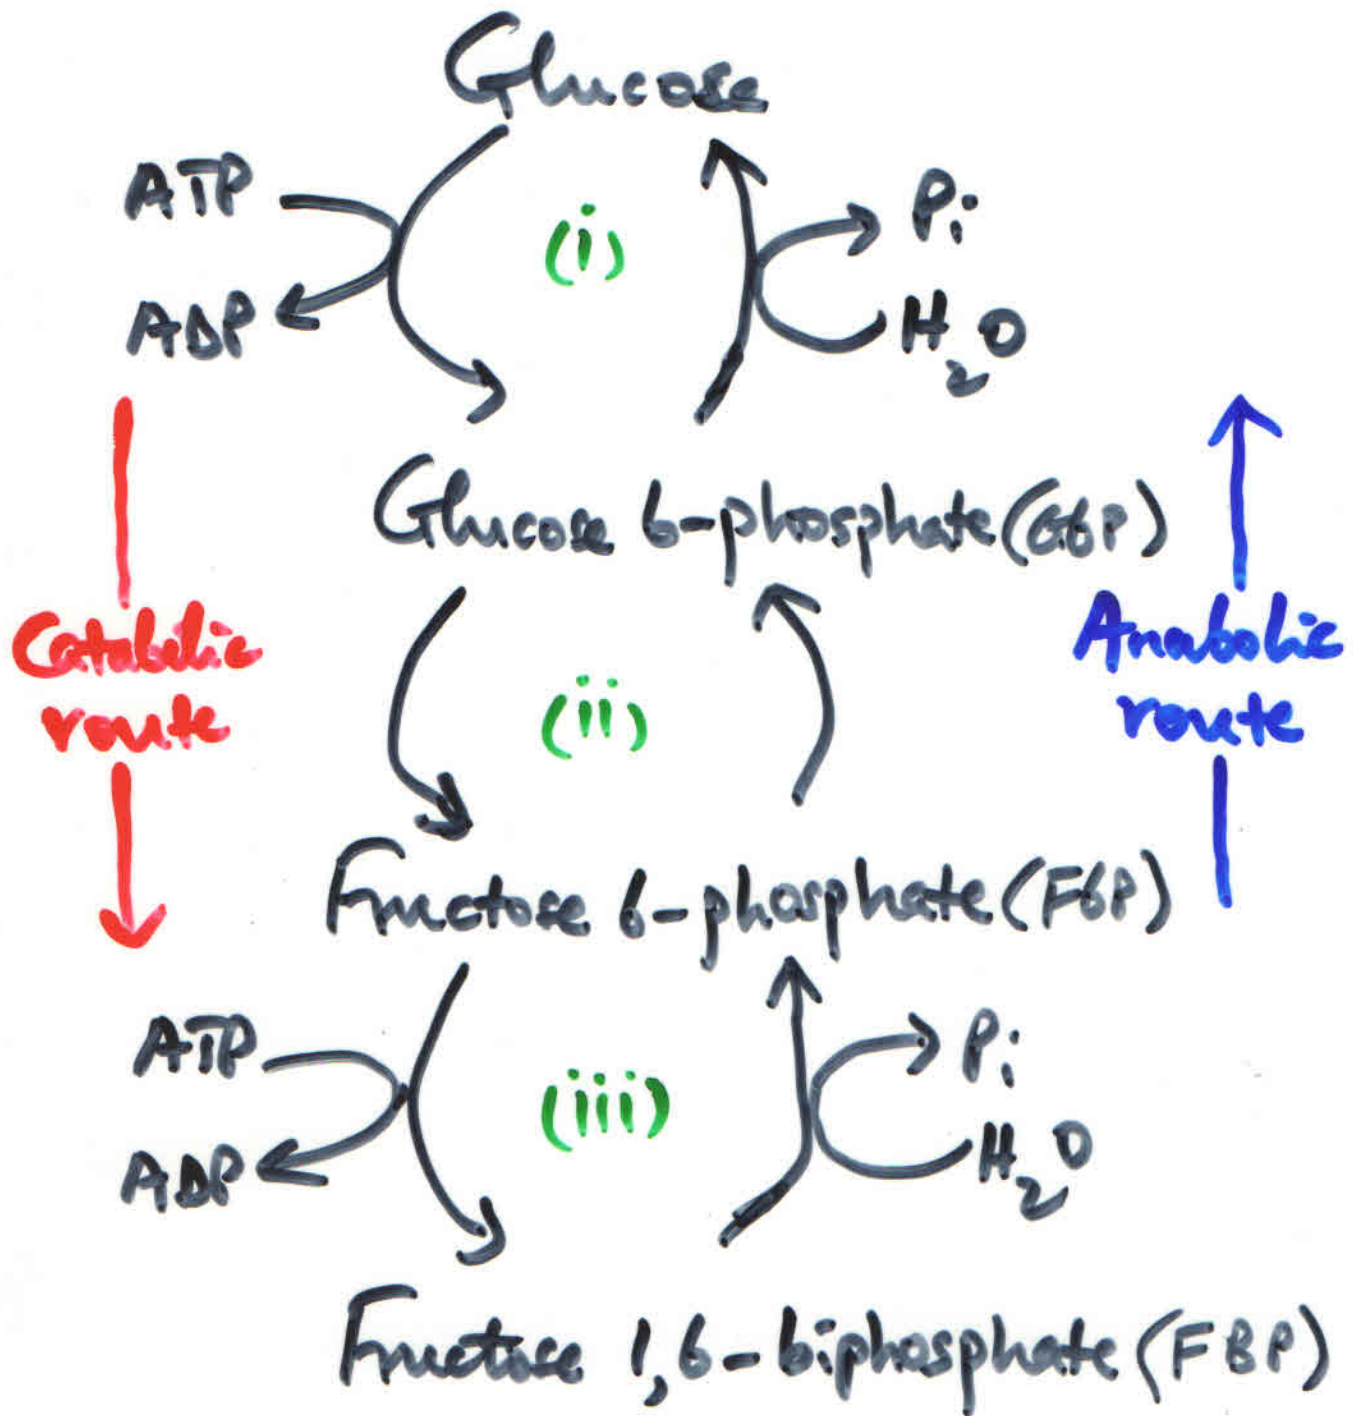 Glucose
ATP
(i)
Pi
ADP
H2O
Glucose 6-phosphate (G6P)
Catabolic
route
(ii)
Anabolic
route
Fructose 6-phosphate (F6P)
ATP
(iii)
Pi
ADP
H2O
Fructose 1,6-biphosphate (FBP)